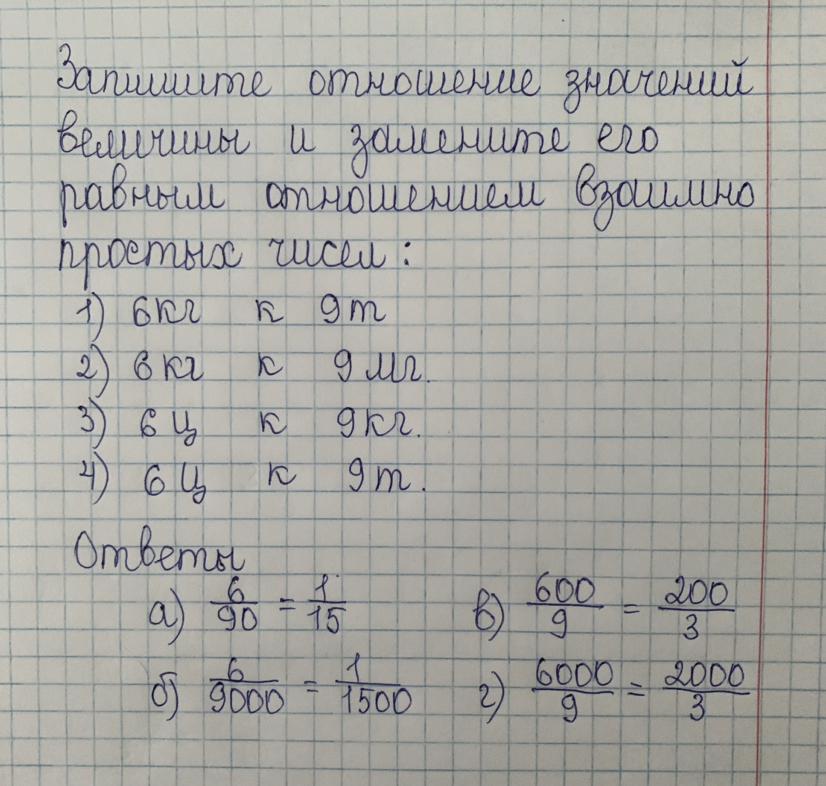 Запишите отношение значений
величины и замените его
равным отношением взаимно
простых чисел:
1) 6кг к 9т
2) 6кг к 9мг.
3) 6ц к 9кг.
4) 6ц к 9т.
Ответы
а) 6/90 = 1/15 в) 600/9 = 200/3
б) 6/9000 = 1/1500 г) 6000/9 = 2000/3